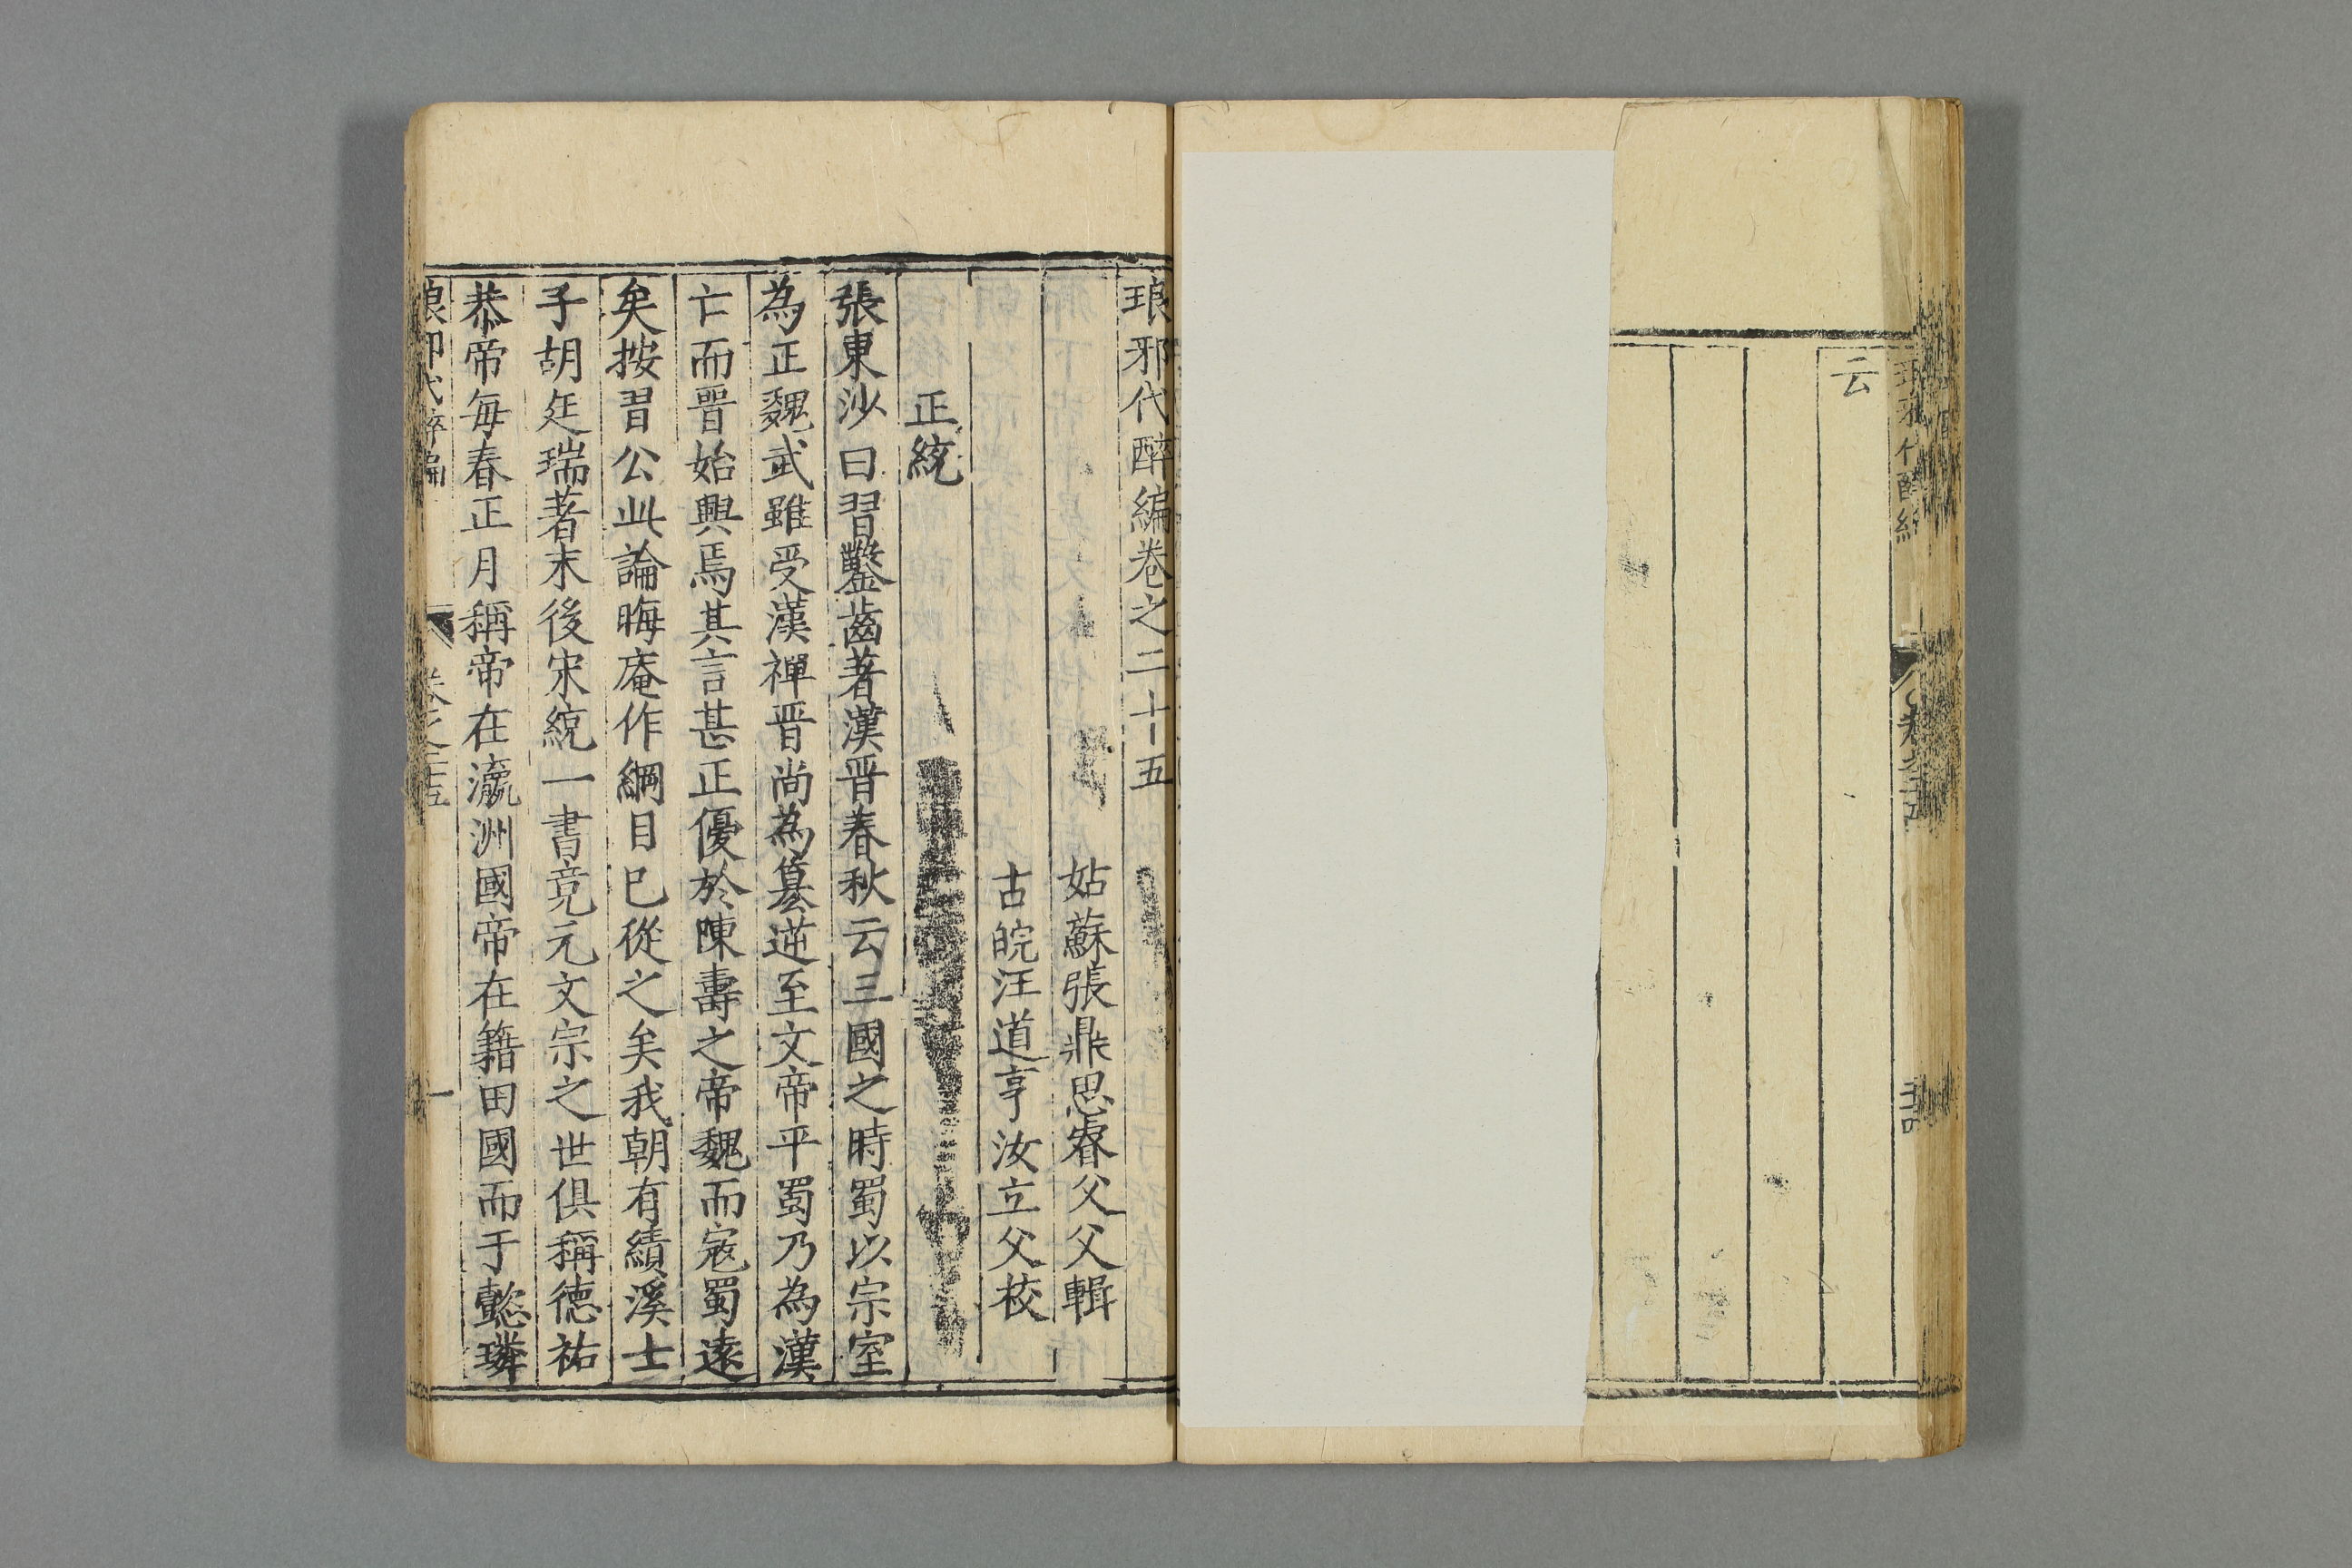 云
琅邪代醉編卷之二十五
姑蘇張鼎思睿父父輯
古皖汪道亨汝立父校
正統
張東沙曰習鑿齒著漢晋春秋云三國之時蜀以宗室
為正魏武雖受漢禪晋尚為簒逆至文帝平蜀乃為漢
亡而晉始興焉其言甚正優於陳壽之帝魏而寇蜀遠
矣按習公此論晦庵作綱目已從之矣我朝有績溪士
子胡廷瑞著末後宋統一書竟元文宗之世俱稱德祐
恭帝每春正月稱帝在瀛洲國帝在籍田國而于懿璘
卷之二十五
一